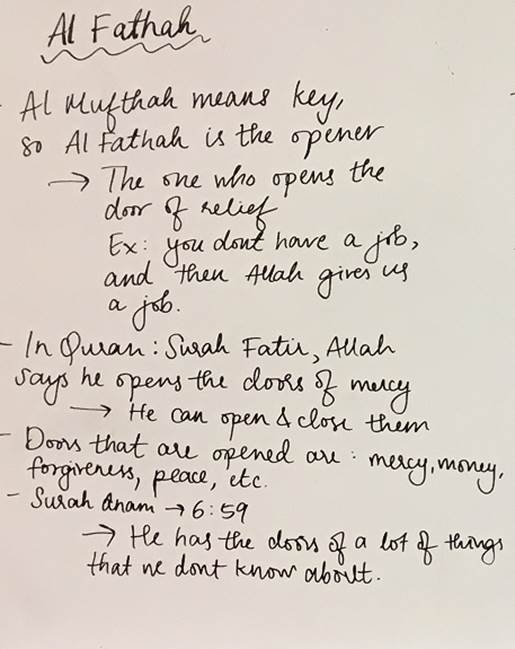 Al Fathah
- Al Mufthah means key,
so Al Fathah is the opener
→ The one who opens the
door of relief
Ex: you dont have a job,
and then Allah gives us
a job.
- In Quran: Surah Fatir, Allah
says he opens the doors of mercy
→ He can open & close them
- Doors that are opened are: mercy, money,
forgiveness, peace, etc.
- Surah Anam → 6:59
→ He has the doors of a lot of things
that we dont know about.